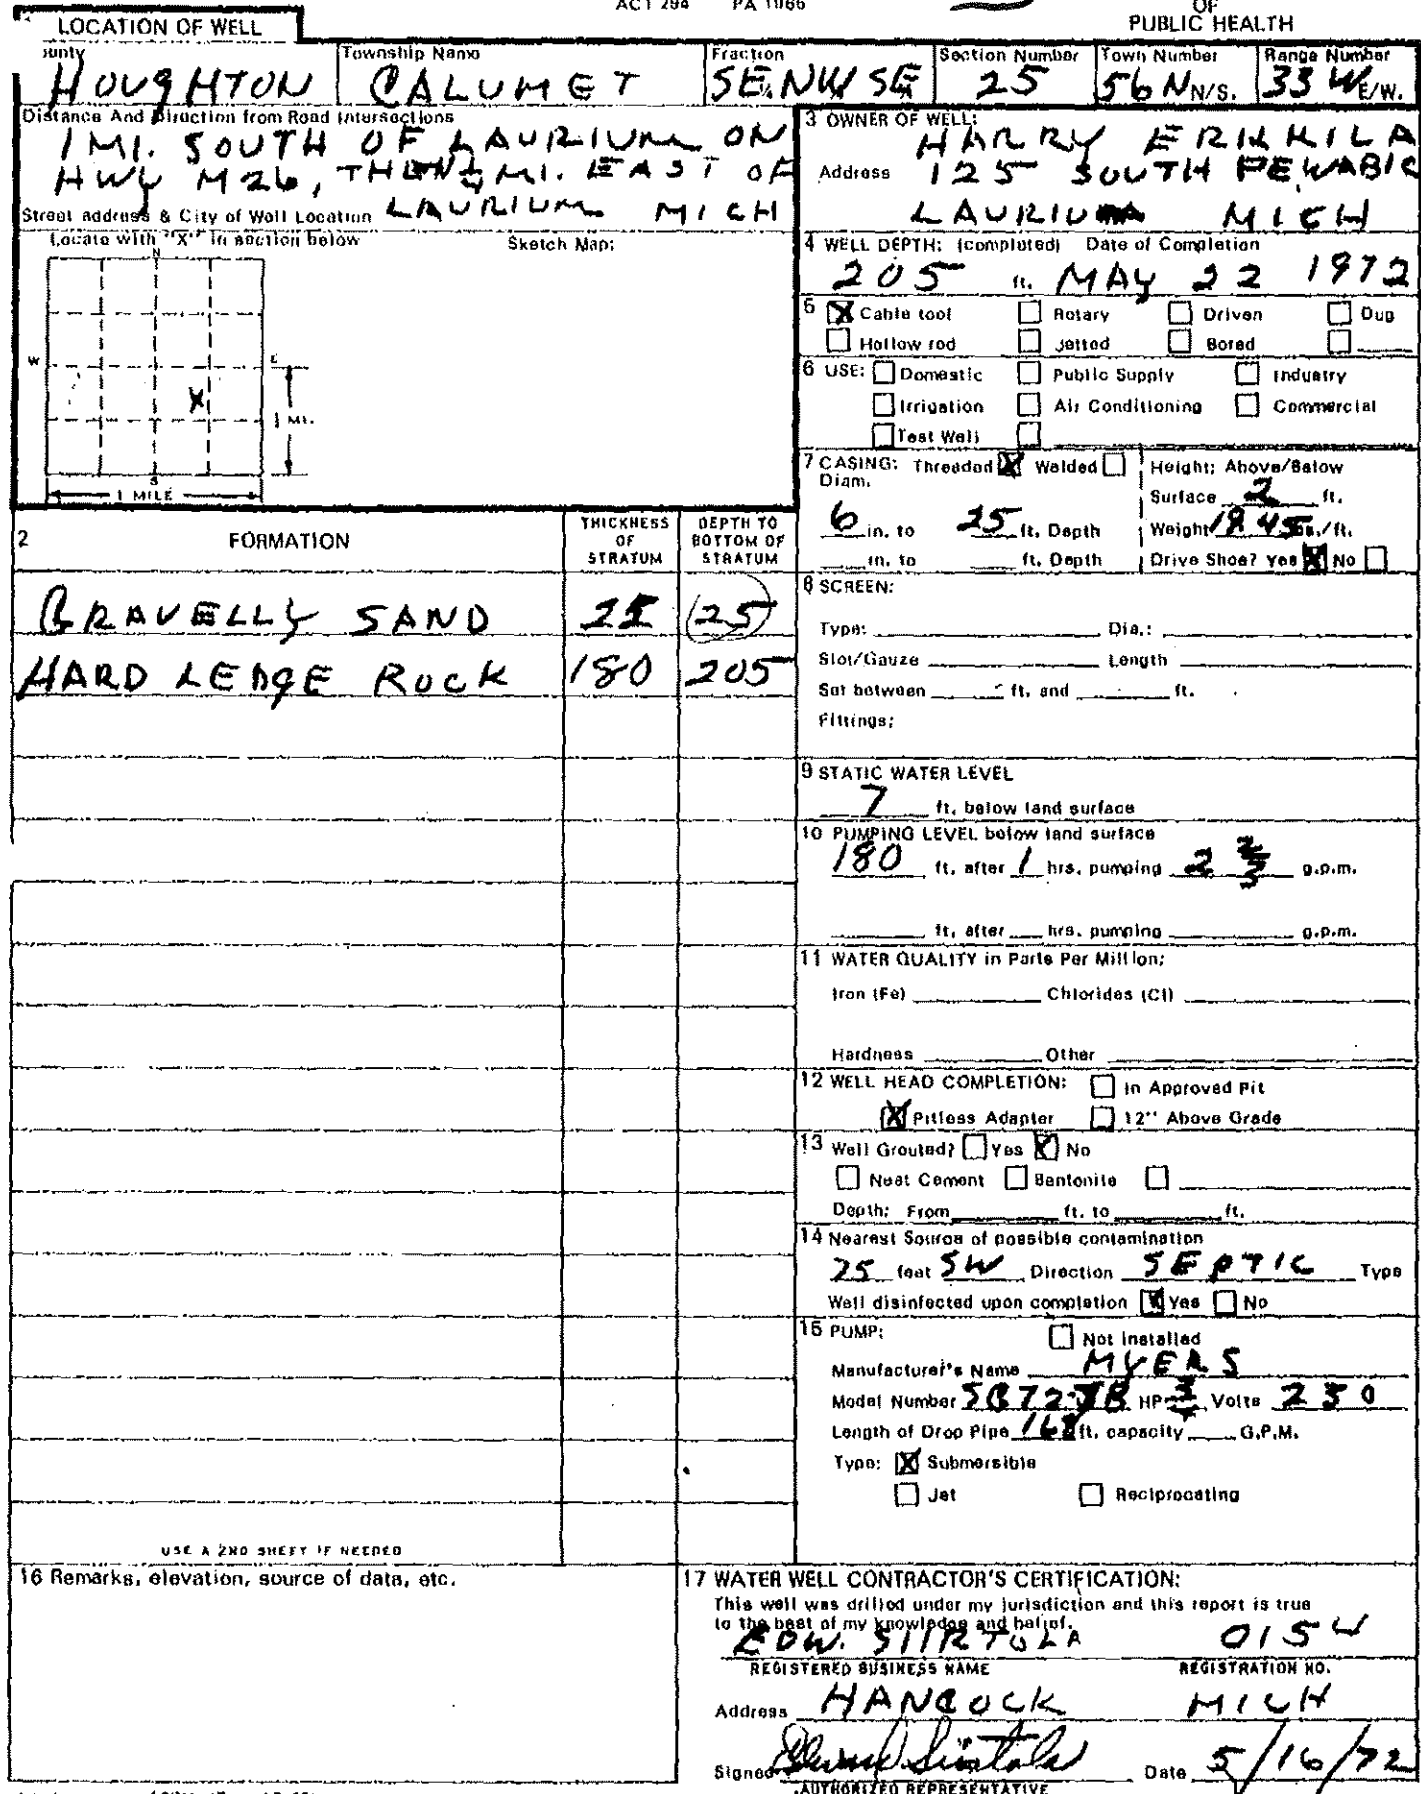 ACT 294 PA 1965
OF
PUBLIC HEALTH
LOCATION OF WELL
ounty
HOUGHTON
Township Name
CALUMET
Fraction
SE¼ NW SE¼
Section Number
25
Town Number
56 N N/S.
Range Number
33 W E/W.
Distance And Direction from Road Intersections
1 MI. SOUTH OF LAURIUM ON
HWY M26, THEN MI. EAST OF
Street address & City of Well Location LAURIUM MICH
Locate with "X" in section below
Sketch Map:
N
W
E
X
½ MI.
S
1 MILE
3 OWNER OF WELL:
HARRY ERKKILA
Address 125 SOUTH PEWABIC
LAURIUM MICH
4 WELL DEPTH: (completed) Date of Completion
205 ft. MAY 22 1972
5 X Cable tool Rotary Driven Dug
Hollow rod Jetted Bored
6 USE: Domestic Public Supply Industry
Irrigation Air Conditioning Commercial
Test Well
7 CASING: Threaded X Welded Height: Above/Below
Diam.
Surface 2 ft.
6 in. to 25 ft. Depth Weight 18.45 lbs./ft.
in. to ft. Depth Drive Shoe? Yes X No
2 FORMATION
THICKNESS OF STRATUM
DEPTH TO BOTTOM OF STRATUM
GRAVELLY SAND 25 25
HARD LEDGE ROCK 180 205
USE A 2ND SHEET IF NEEDED
8 SCREEN:
Type: Dia.:
Slot/Gauze Length
Set between ft. and ft.
Fittings:
9 STATIC WATER LEVEL
7 ft. below land surface
10 PUMPING LEVEL below land surface
180 ft. after 1 hrs. pumping 2 2/3 g.p.m.
ft. after hrs. pumping g.p.m.
11 WATER QUALITY in Parts Per Million:
Iron (Fe) Chlorides (Cl)
Hardness Other
12 WELL HEAD COMPLETION: In Approved Pit
X Pitless Adapter 12" Above Grade
13 Well Grouted? Yes X No
Neat Cement Bentonite
Depth: From ft. to ft.
14 Nearest Source of possible contamination
75 feet SW Direction SEPTIC Type
Well disinfected upon completion X Yes No
15 PUMP: Not installed
Manufacturer's Name MYERS
Model Number HP 3/4 Volts 230
Length of Drop Pipe 168 ft. capacity G.P.M.
Type: X Submersible
Jet Reciprocating
16 Remarks, elevation, source of data, etc.
17 WATER WELL CONTRACTOR'S CERTIFICATION:
This well was drilled under my jurisdiction and this report is true
to the best of my knowledge and belief.
EDW. SIIRTOLA 0154
REGISTERED BUSINESS NAME REGISTRATION NO.
Address HANCOCK MICH
Signed Date 5/16/72
AUTHORIZED REPRESENTATIVE